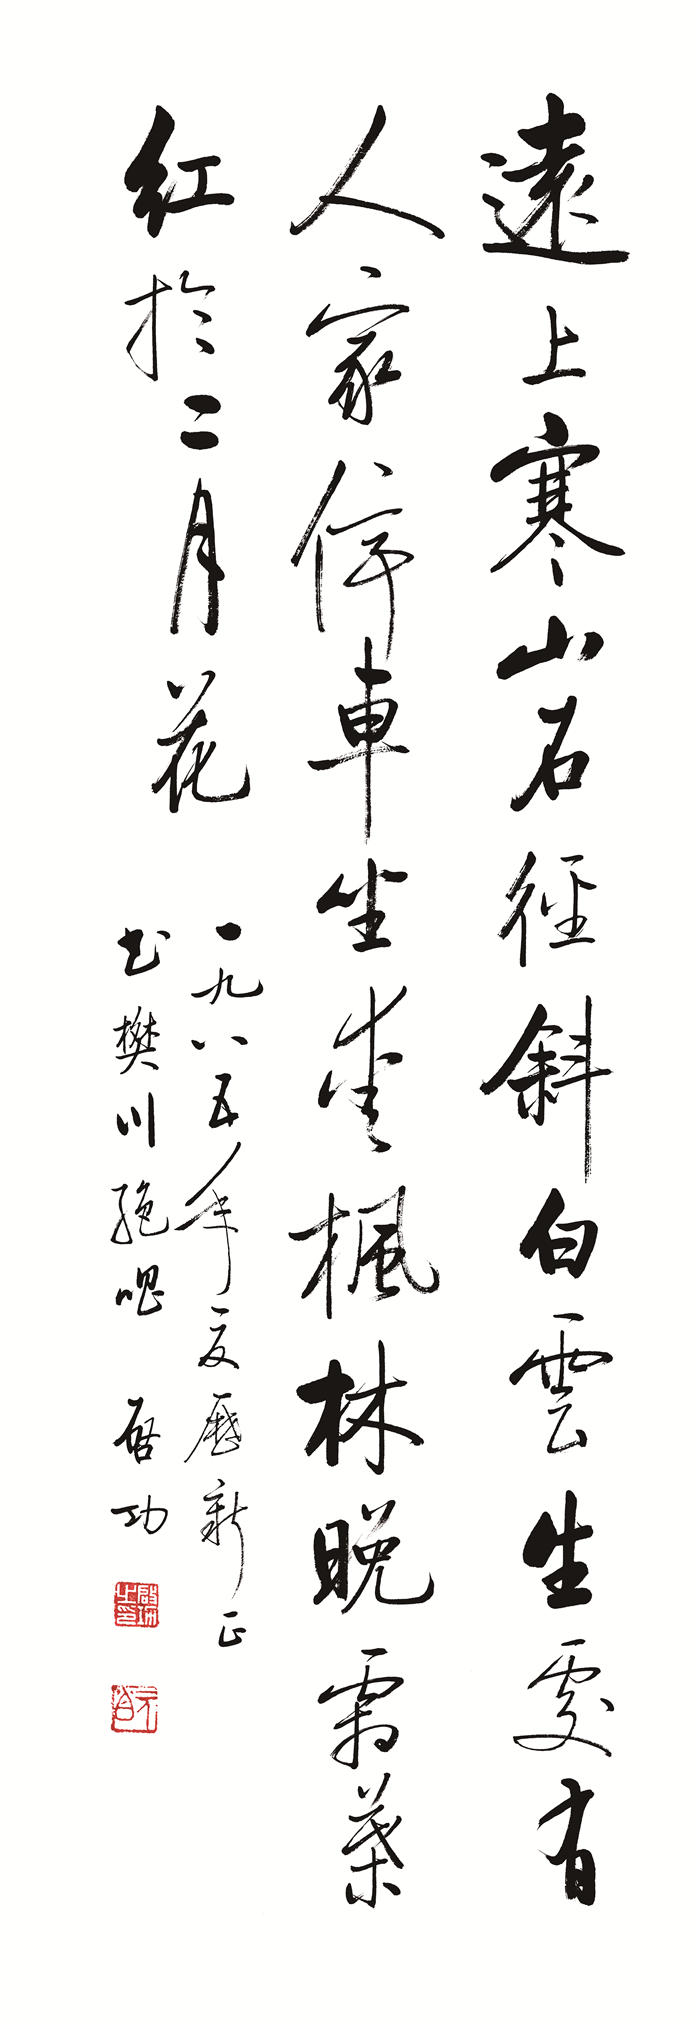 遠上寒山石徑斜白雲生處有
人家停車坐愛楓林晚霜葉
红於二月花
一九八五年夏歷新正
书樊川絕唱 啓功
啟功之印
元白